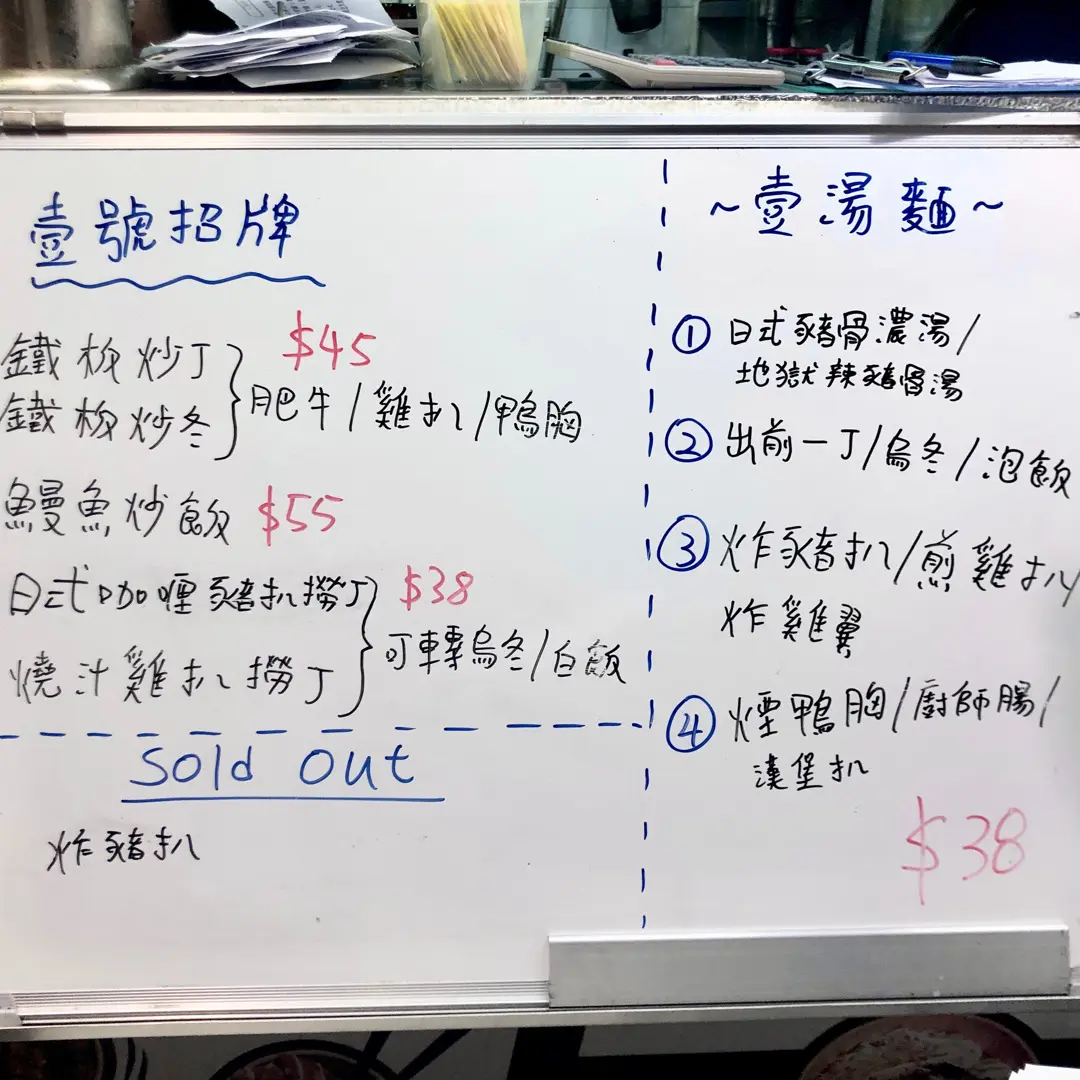 壹號招牌
鐵板炒丁
鐵板炒冬
$45
肥牛/雞扒/鴨胸
鰻魚炒飯 $55
日式咖喱豬扒撈丁
燒汁雞扒撈丁
$38
可轉烏冬/白飯
Sold Out
炸豬扒
~壹湯麵~
① 日式豬骨濃湯/
地獄辣豬骨湯
② 出前一丁/烏冬/泡飯
③ 炸豬扒/煎雞扒
炸雞翼
④ 煙鴨胸/廚師腸/
漢堡扒
$38